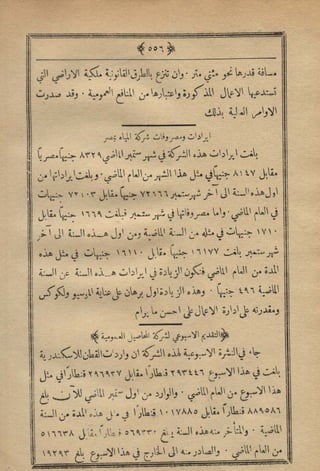 ﴿٥٥٦﴾
مسافة قدرها نحو مئتي متر . وان تنزع بالطرق القانونية ملكية الاراضي التي
تستدعيها الاعمال المذكورة واعتبارها من المنافع العمومية . وقد صدرت
الاوامر العالية بذلك
ايرادات ومصروفات شركة المياه بمصر
بلغت ايرادات هذه الشركة في شهر ستمبر الماضي ٨٣٢٩ جنيهاً مصرياً
مقابل ٨١٤٧ جنيهاً في مثل هذا الشهر من العام الماضي . وبلغت ايراداتها من
اول هذه السنة الى آخر شهر ستمبر ٧٢٦٦٦ جنيهاً مقابل ٧٢١٠٣ جنيهات
في العام الماضي . واما مصروفاتها في شهر ستمبر فبلغت ١٦٦٩ جنيهاً مقابل
١٧١٠ جنيهات في مثله من السنة الماضية ومن اول هذه السنة الى آخر
شهر ستمبر بلغت ١٦١٧٧ جنيهاً مقابل ١٦١١٠ جنيهات في مثل هذه
المدة من العام الماضي فتكون الزيادة في ايرادات هذه السنة عن السنة
الماضية ٤٩٦ جنيهاً . وهذه الزيادة اول برهان على عناية المرسيو ولكوكس
ومقدرته على ادارة الاعمال على احسن ما يرام
﴿التقديم الاسبوعي لشركة المحاصيل العمومية﴾
جاء في النشرة الاسبوعية لهذه الشركة ان واردات القطن للاسكندرية
بلغت في هذا الاسبوع ٢٩٣٤٤٦ قنطاراً مقابل ٢٩٦٩٣٧ قنطاراً في مثل
هذا الاسبوع من العام الماضي . والوارد من اول ستمبر الماضي للآن بلغ
٨٨٩٥٨٦ قنطاراً مقابل ١٠١٧٨٨٥ قنطاراً في مثل هذه المدة من السنة
الماضية . والمتأخر منه هذه السنة بلغ ٥٦٩٣٣٠ قنطاراً مقابل ٥١٦٦٣٨
من العام الماضي . والصادر منه الى الخارج في هذا الاسبوع بلغ ١٩٢٩٣